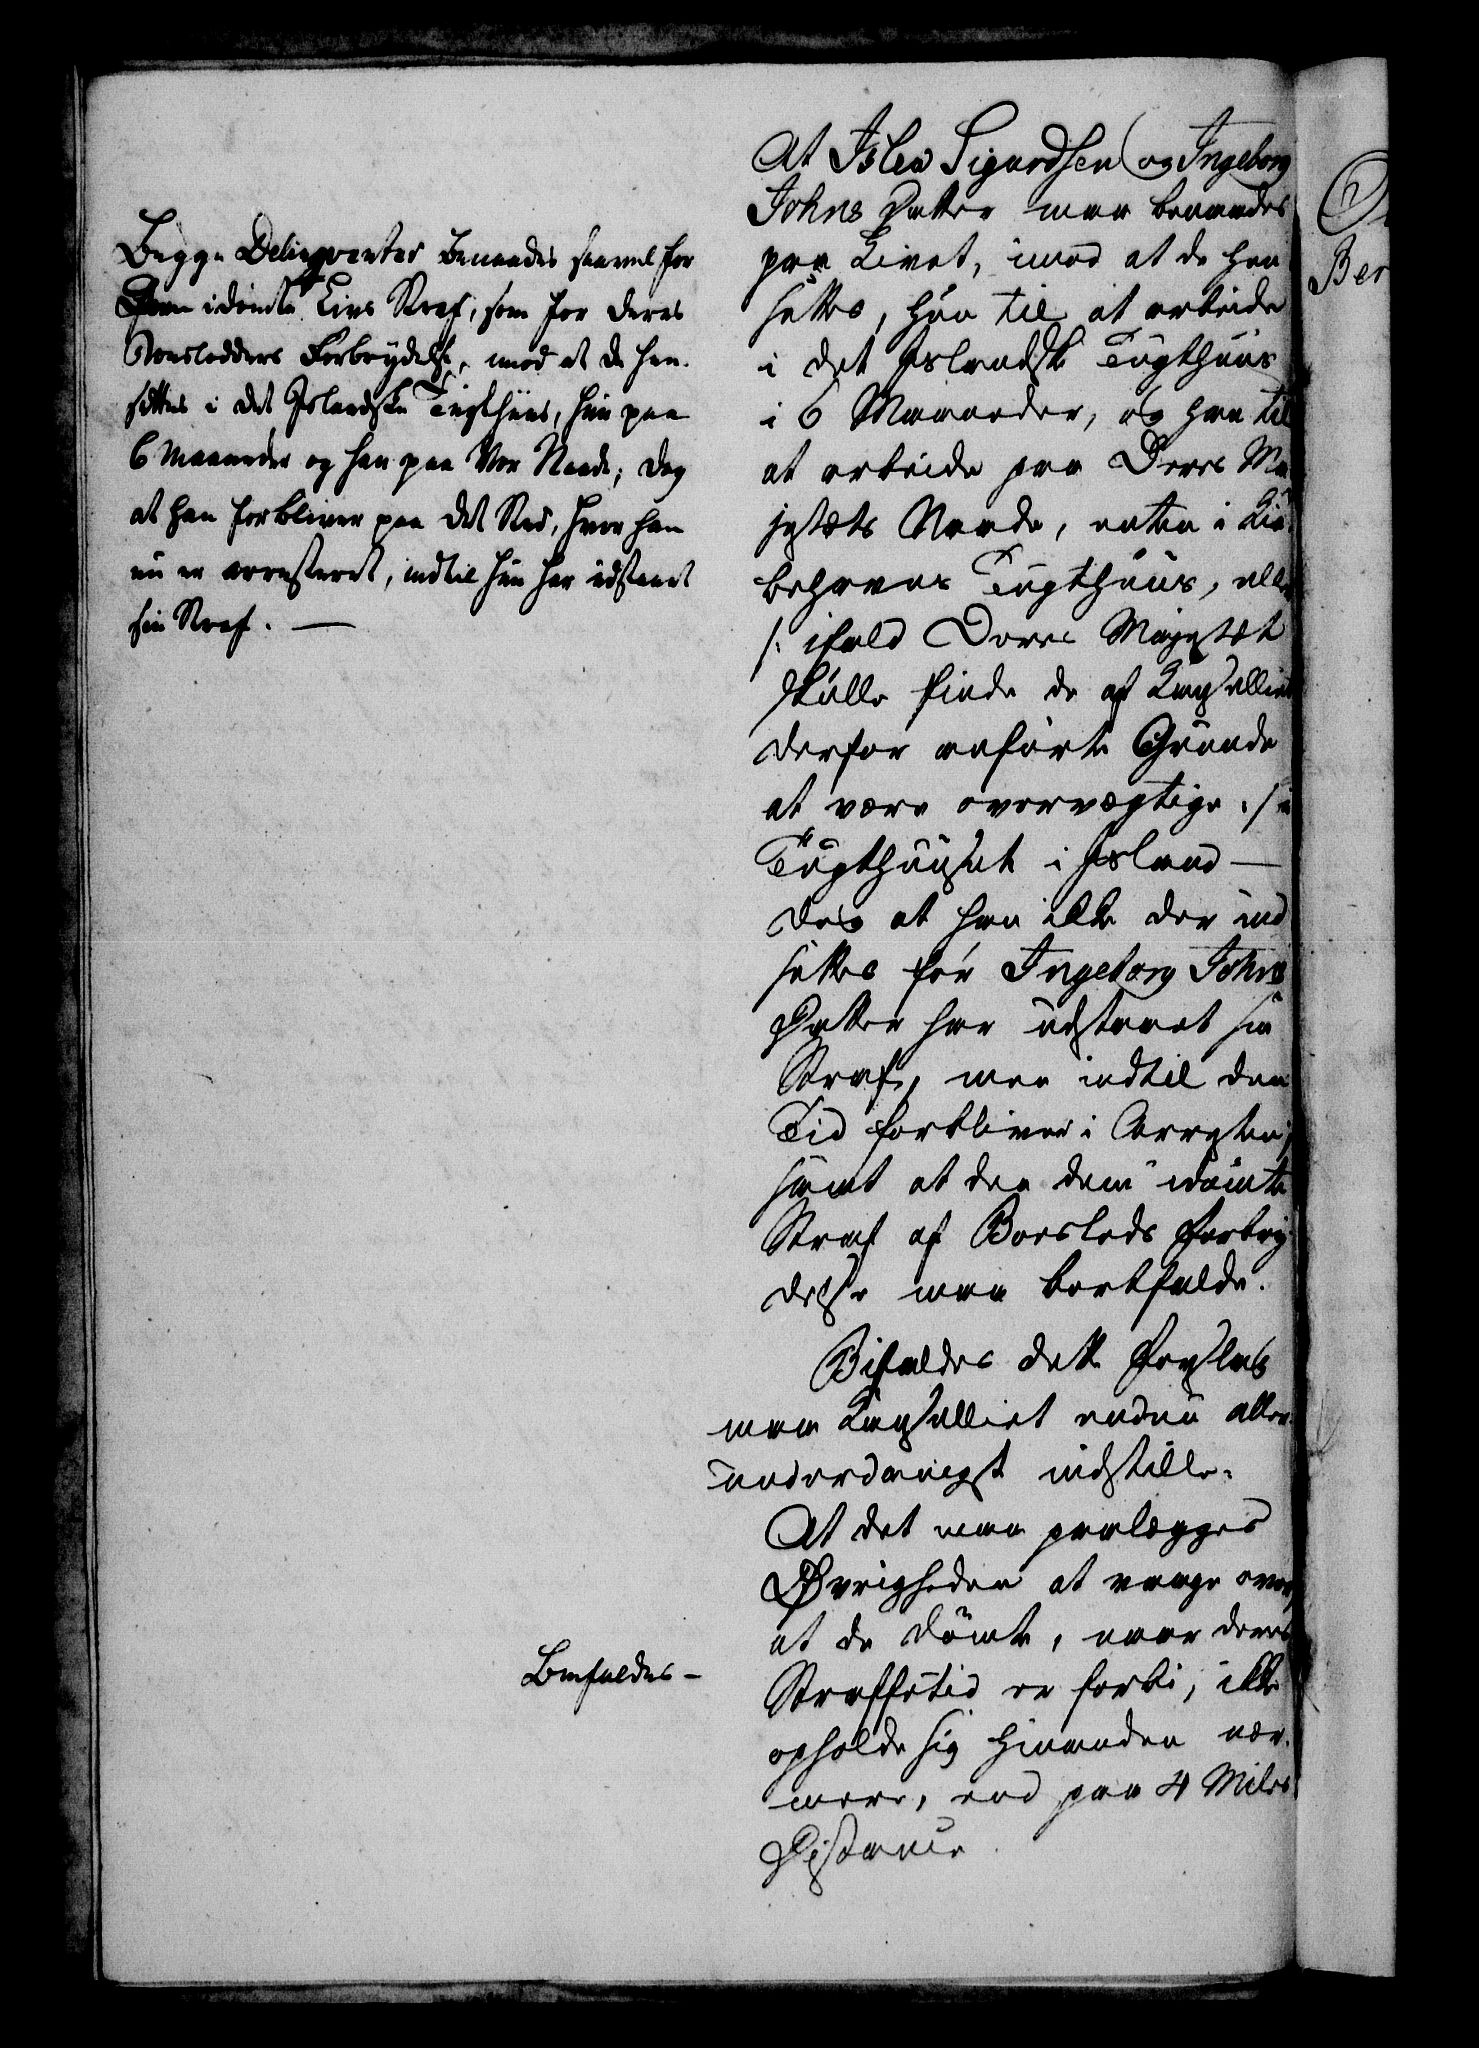 Begge Delinqventer benaades saavel for
idømte Livs Straf, som for deres
Boeslodders Forbrydelse, mod at de hen-
settes i det Islandske Tugthuus, hun paa
6 Maaneder og han paa Vor Naade; dog
at han forbliver paa det Sted, hvor han
nu er arresteret, indtil hun har udstaaet
sin Straf. —
At Islev Sigurdsen og Ingeborg
Johns Datter maa benaades
paa Livet, imod at de hen
settes, hun til at arbeide
i det Islandsk Tugthuus
i 6 Maaneder, og han til
at arbeide paa Deres Ma
jestæts Naade, enten i Kiø-
behavns Tugthuus, eller
/: ifald Deres Majestæt
skulle finde de af Cancelliet
derfor anførte Grunde
at være overvægtige :/ i
Tugthuuset i Island —
dog at han ikke der ind
settes før Ingeborg Johns
Datter har udstaaet sin
Straf, men indtil den
Tid forbliver i Arresten;
samt at den dem idømte
Straf af Boeslods Forbry
delse maa bortfalde.
Bifaldes dette Forslag
maa Cancelliet endnu aller-
underdanigst indstille.
At det maa paalægges
Øvrigheden at vaage over,
at de dømte, naar deres
Straffetid er forbi, ikke
opholde sig hinanden nær-
mere, end paa 4 Miles
Distance.
Bifaldes –
Ber